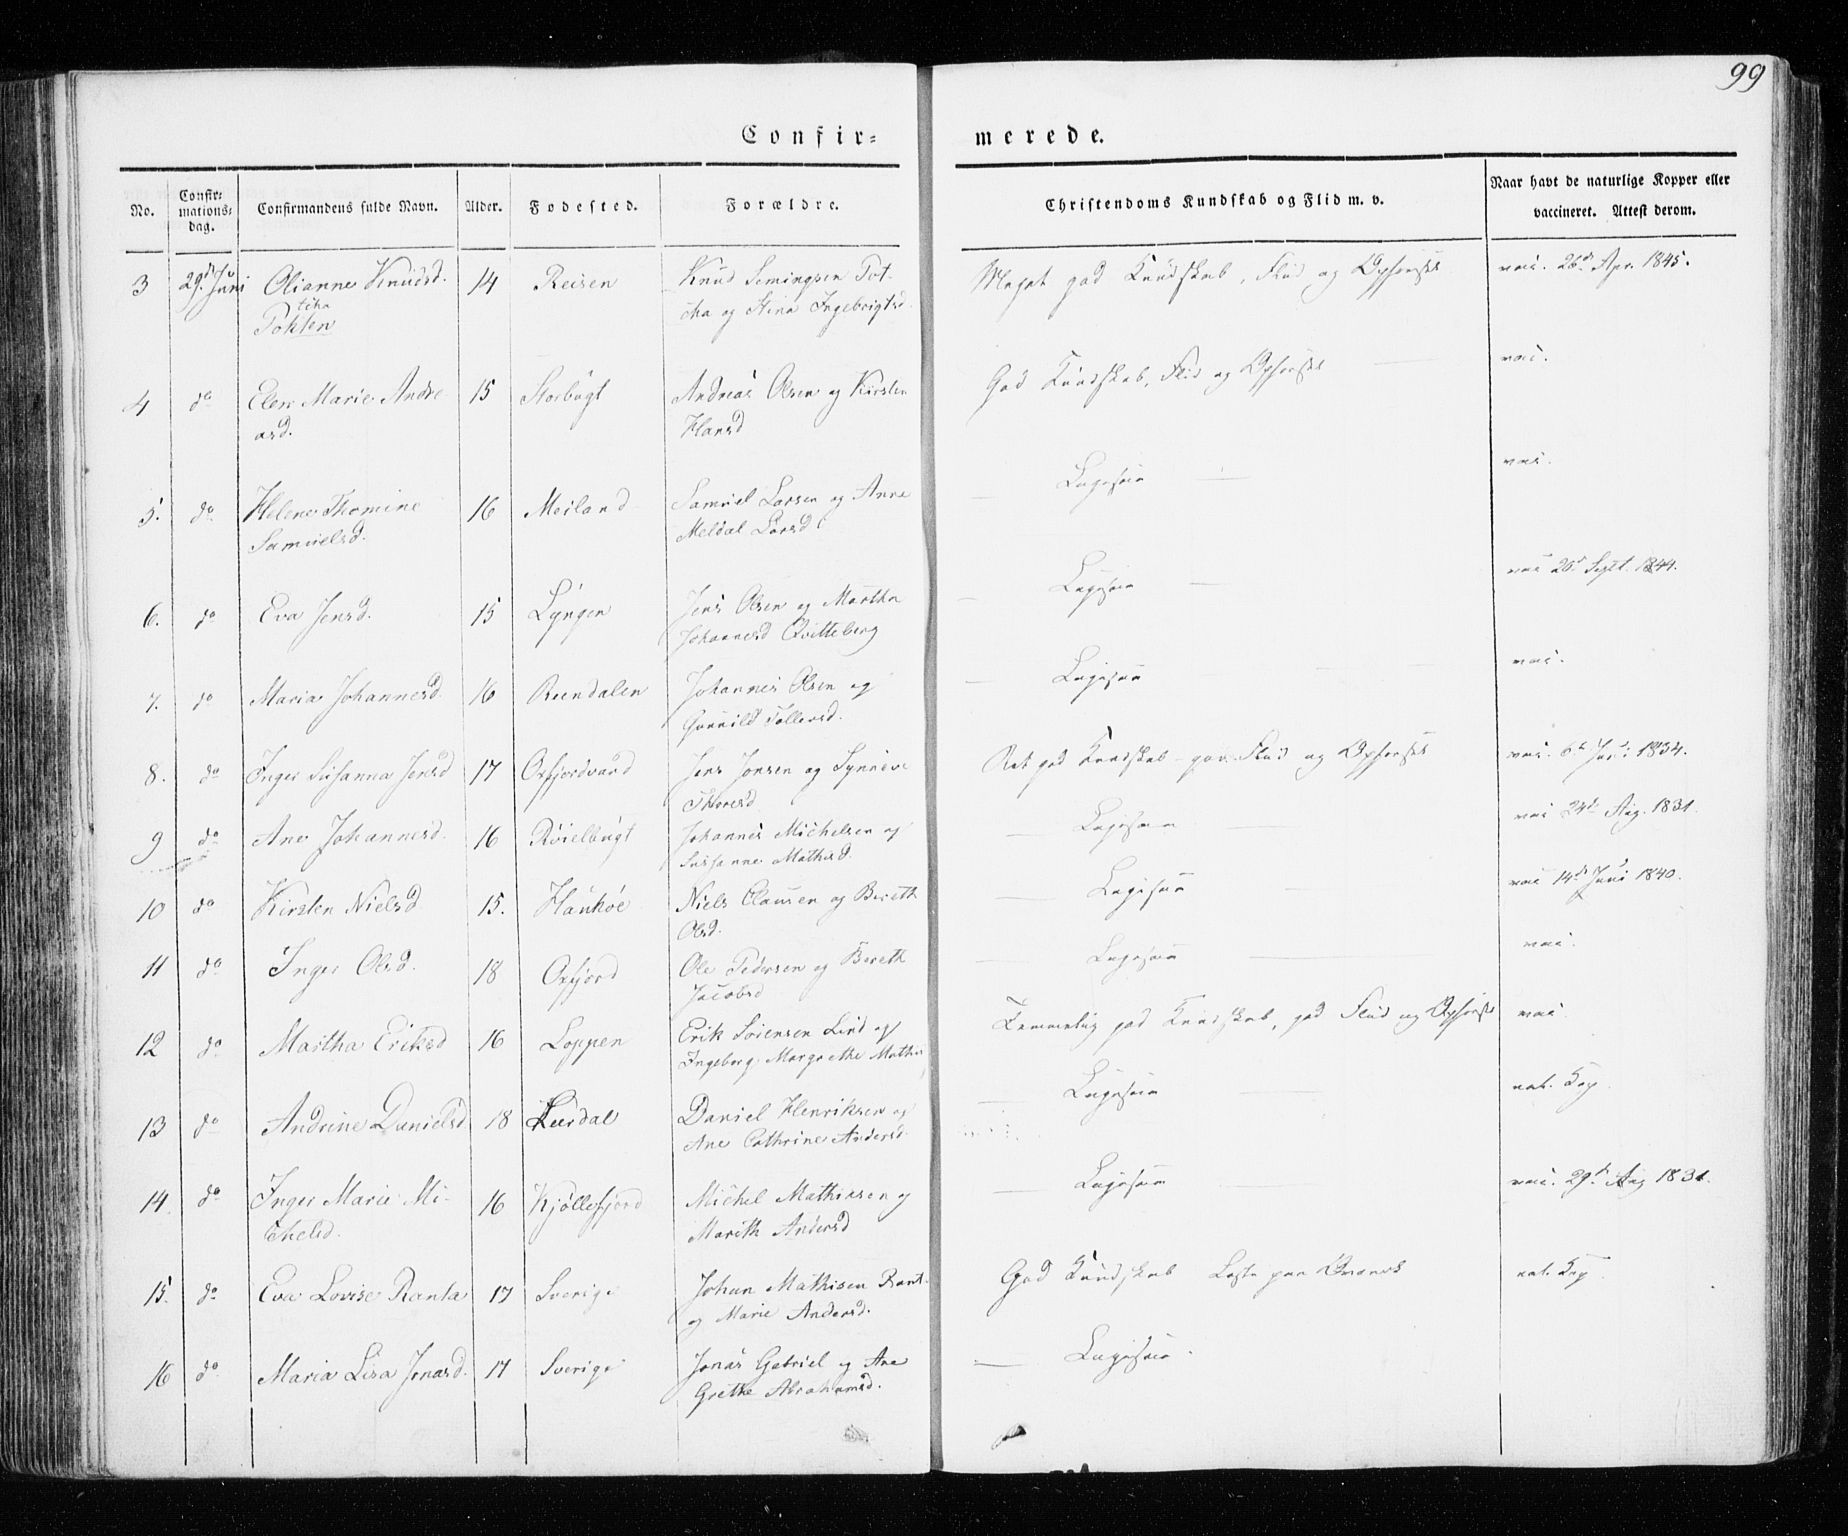 99
Confir= merede.
No. Confir=mations=dag. Confirmandens fulde Navn. Alder. Fodested. Forældre. Christendoms Kundskab og Flid m. v. Naar havt de naturlige Kopper eller vaccineret. Attest derom.
3 29d Juni Olianne Knudsd. 14 Reisen Knud Semingsen Pot- Meget god Kundskab, Flid og Opførsel vac. 26d Apr. 1845.
tika
cha og Stina Ingebrigtsd.
4 do Elen Marie Andre 15 Storbugt Andreas Olsen og Kirsten God Kundskab, Flid og Opførsel vac.
asd. Hansd
5. do Helene Thomine 16 Meiland Samuel Larsen og Anne — Ligesaa — vac.
Samuelsd. Meldal Larsd
6. do Eva Jensd. 15 Lyngen Jens Olsen og Martha — Ligesaa — vac 26d Sept. 1844.
Johannesd Qvitteberg
7. do Maria Johannesd. 16 Johannes Olsen og — Ligesaa — vac.
Gunnild Tollefsd.
8. do Inger Susanna Jensd 17 Oxfjordvand Jens Jonsen og Synneve Ret god Kundskab - god Flid og Opførsel vac. 6te Juni 1834.
Thoresd
9 do Ane Johannesd. 16 Johannes Michelsen og — Ligesaa — vac 24de Aug. 1831.
Susanne Mathisd.
10 do Kirsten Nielsd 15. Haukøe Niels Clausen og Bereth — Ligesaa — vac 14de Juni 1840.
Olsd.
11 do Inger Olsd. 18 Oxfjord Ole Pedersen og Bereth — Ligesaa — vac.
Jacobsd
12 do Martha Eriksd 16 Loppen Erik Sørensen Lind og Temmelig god Kundskab, god Flid og Opførsel vac.
Ingeborg Margrethe Mathis
13 do Andrine Danielsd 18 Leerdal Daniel Henriksen og — Ligesaa — nat. Kop.
Ane Cathrine Andersd.
14. do Inger Marie Mi- 16 Kjøllefjord Michel Mathisen og — Ligesaa — vac. 29de Aug 1831.
chelsd. Marith Andersd
15. do Eva Lovise Ranta 17 Sverige Johan Mathisen Rant. God Kundskab Læste paa Qvænsk nat. Kop
og Marie Andersd.
16 do Maria Lisa Jonasd. 17 Sverige Jonas Gabriel og Ane — Ligesaa.
Grethe Abrahamsd.